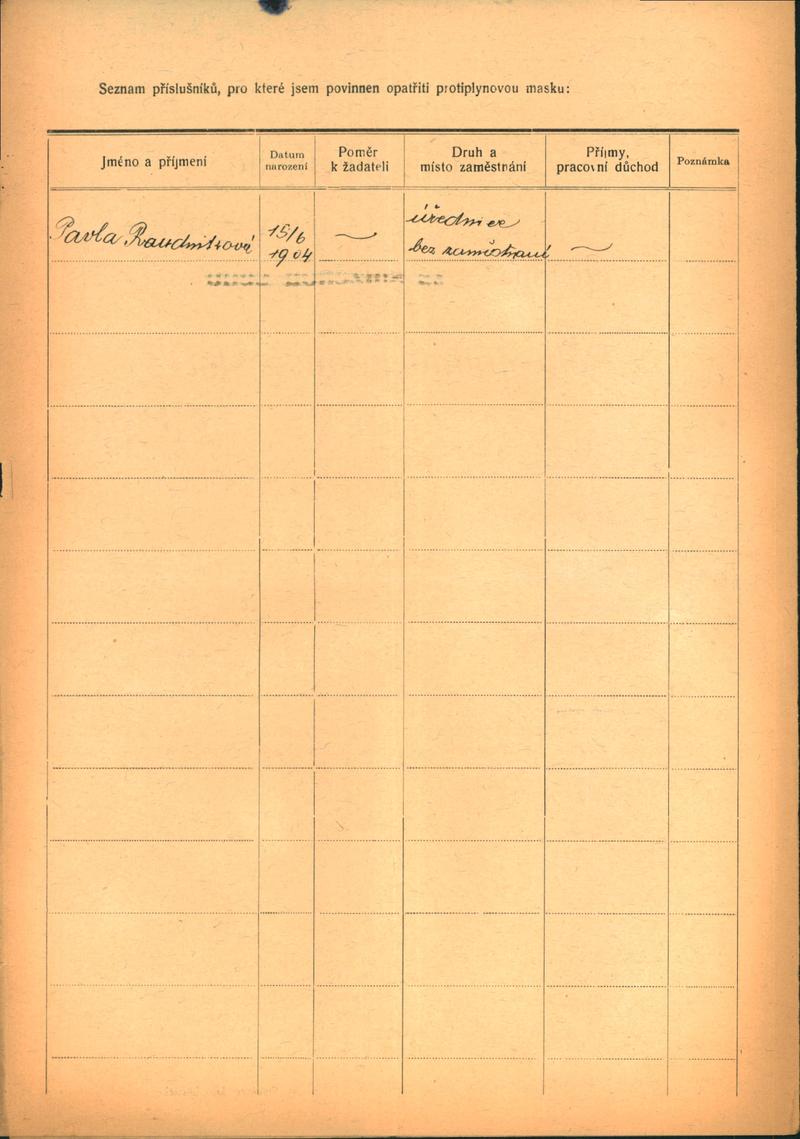 Seznam příslušníků, pro které jsem povinnen opatřiti protiplynovou masku:
Jméno a příjmení
Datum
narození
Poměr
k žadateli
Druh a
místo zaměstnání
Příjmy,
pracovní důchod
Poznámka
Pavla Raudnitzová
15/6
1904
bez zaměstnání